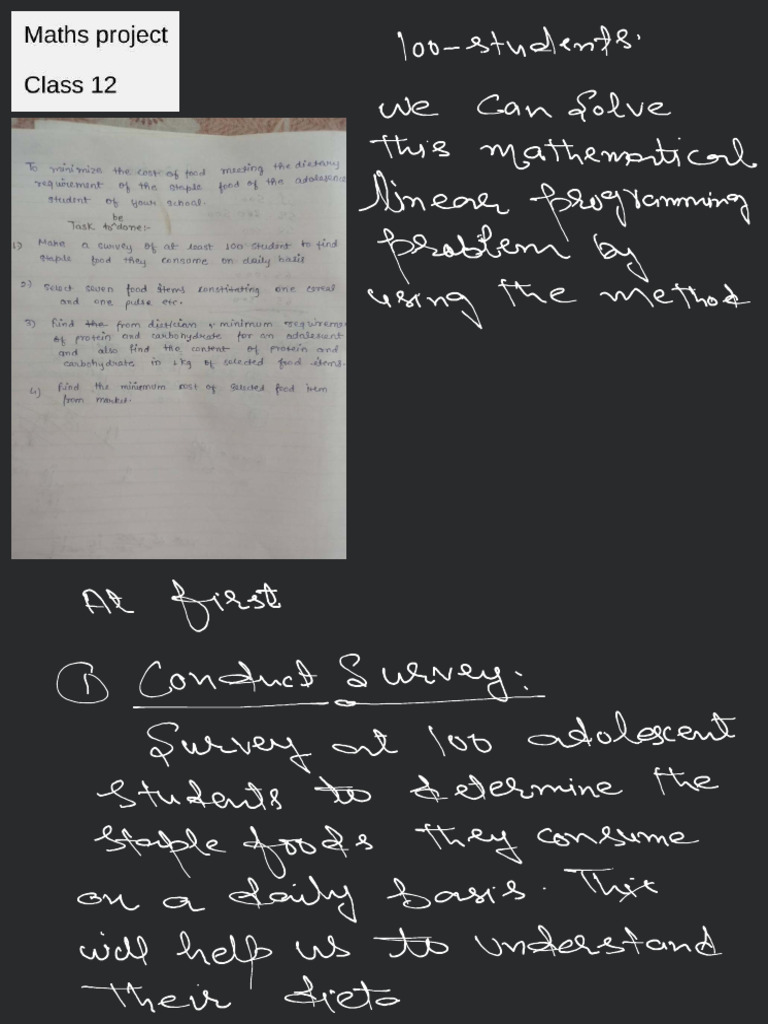 Maths project
Class 12
To minimize the cost of food meeting the dietary
requirement of the staple food of the adolescence
student of your school.
be
Task to done:-
1) Make a survey of at least 100 student to find
staple food they consume on daily basis
2) Select seven food items constituting one cereal
and one pulse etc.
3) Find the from dietician minimum requirem
of protein and carbohydrate for an adolescent
and also find the content of protein and
carbohydrate in 1 kg of selected food items.
4) Find the minimum cost of selected food item
from market.
100-students.
we can solve
this mathematical
linear programming
problem by
using the method
At first
① Conduct Survey:
Survey at 100 adolescent
students to determine the
staple foods they consume
on a daily basis. This
will help us to understand
their diets